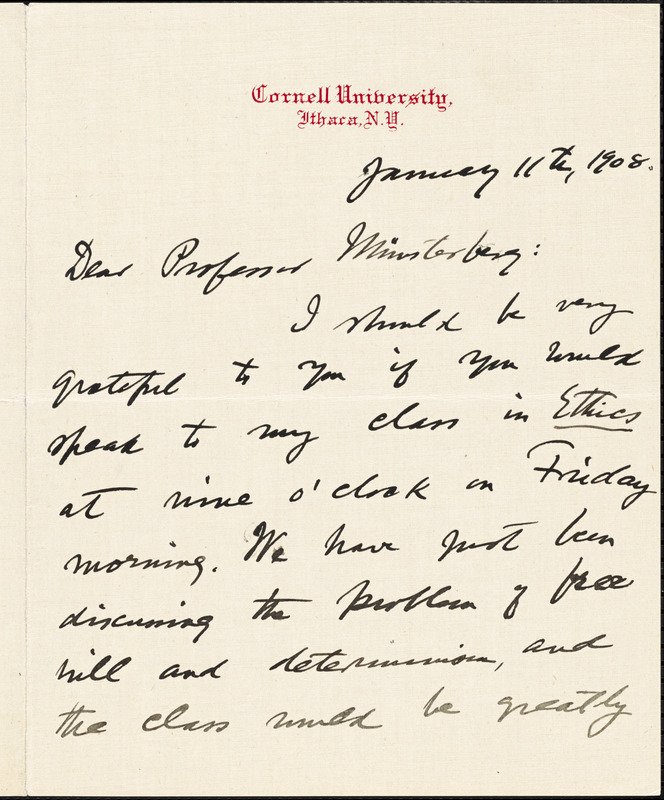 Cornell University,
Ithaca, N.Y.
January 11th, 1908.
Dear Professor Münsterberg:
I should be very
grateful to you if you would
speak to my class in Ethics
at nine o'clock on Friday
morning. We have just been
discussing the problem of free
will and determinism, and
the class would be greatly